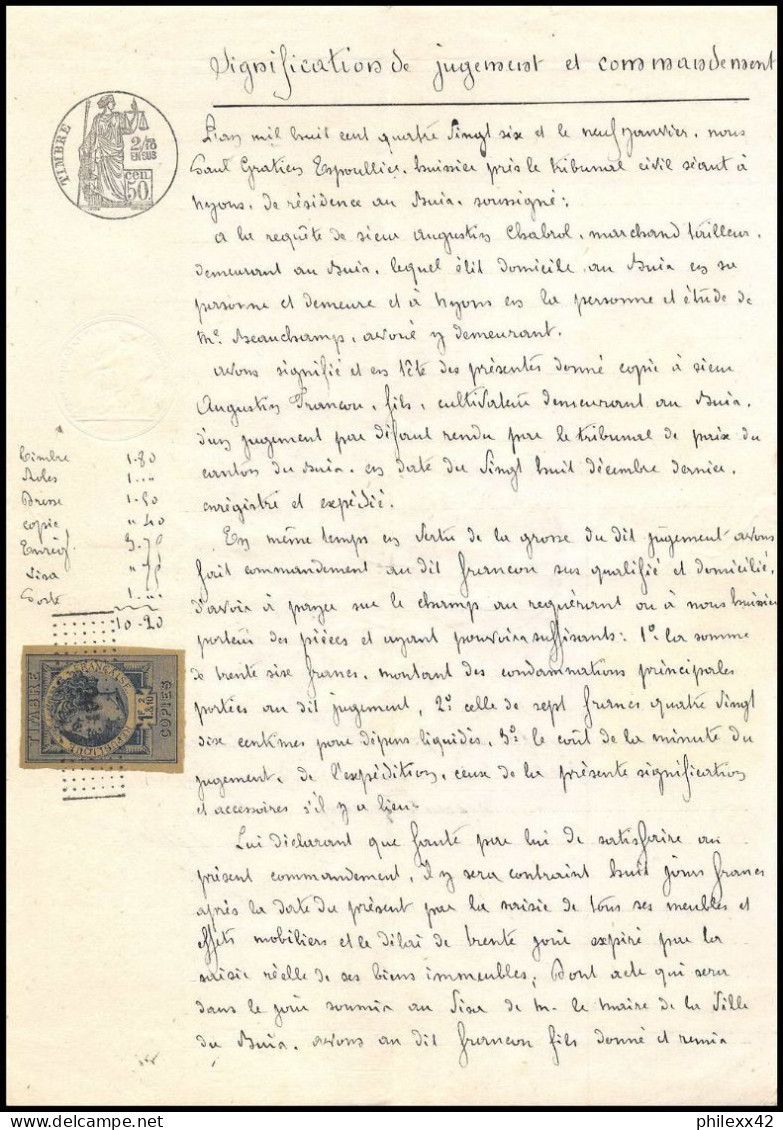 Signification de jugement et commandement
TIMBRE
2/10
EN SUS
cen.
50
L'an mil huit cent quatre vingt six et le neuf janvier, nous
Gratien Espoullier, huissier près le tribunal civil séant à
nyons, de résidence au Buis, soussigné;
a la requête de sieur augustin Chabrol, marchand tailleur,
demeurant au Buis, lequel élit domicile au Buis en sa
personne et demeure et à nyons en la personne et étude de
Me Beauchamp, avoué y demeurant.
avons signifié et en tête des présentes donné copie à sieur
Augustin Francou, fils, cultivateur demeurant au Buis,
d'un jugement par défaut rendu par le tribunal de paix du
canton du Buis, en date du vingt huit décembre dernier,
enregistré et expédié.
En même temps en vertu de la grosse du dit jugement avons
fait commandement au dit francou sus qualifié et domicilié,
d'avoir à payer sur le champ au requérant ou à nous huissier
porteur des pièces et ayant pouvoirs suffisants: 1° la somme
de trente six francs, montant des condamnations principales
portées au dit jugement, 2° celle de sept francs quatre vingt
dix centimes pour dépens liquidés, 3° le coût de la minute du
jugement, de l'expédition, ceux de la présente signification
et accessoires s'il y a lieu.
Lui déclarant que faute par lui de satisfaire au
présent commandement, il y sera contraint huit jours francs
après la date du présent par la saisie de tous ses meubles et
effets mobiliers et le délai de trente jours expiré par la
saisie réelle de ses biens immeubles; Dont acte qui sera
dans le jour soumis au visa de m. le maire de la Ville
du Buis, avons au dit francou fils donné et remis
timbre 1.80
Roles 1 ..
Dresse 1.50
copie " 40
Enreg. 3.75
Visa " 75
Poste 1 ...
10.20
TIMBRE
REPUBLIQUE FRANÇAISE
COPIES
philexx42